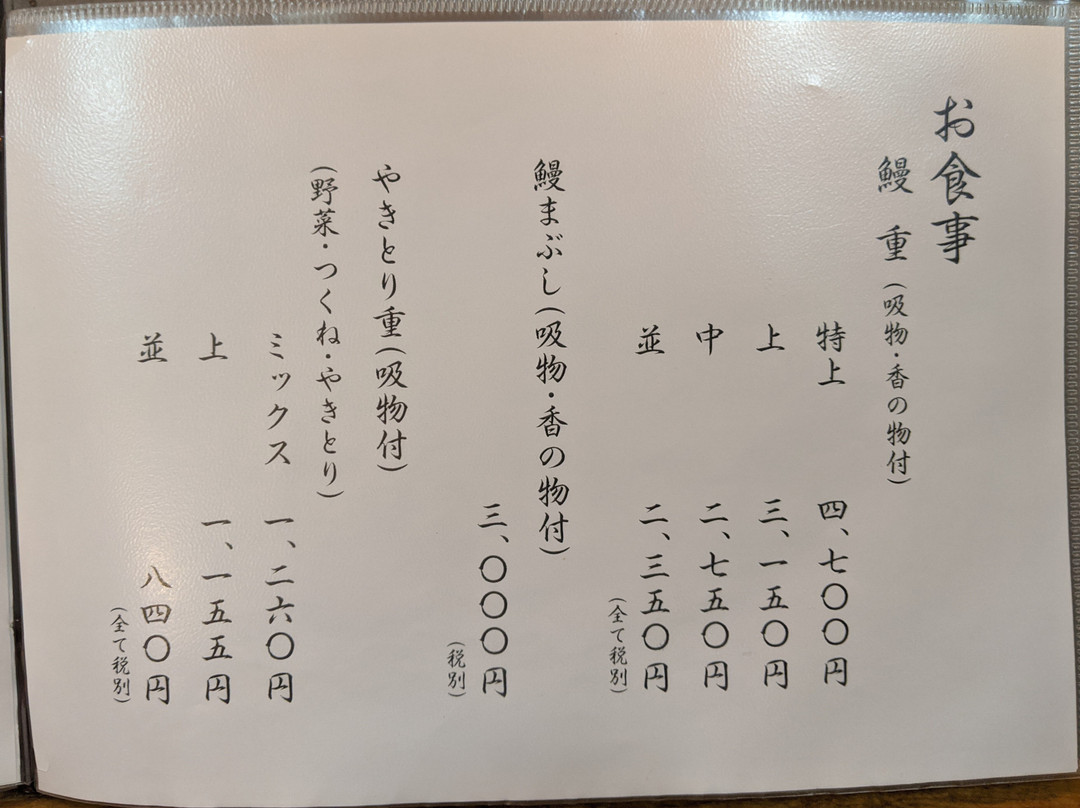 お食事
鰻 重(吸物・香の物付)
特上 四、七〇〇円
上 三、一五〇円
中 二、七五〇円
並 二、三五〇円
(全て税別)
鰻まぶし(吸物・香の物付)
三、〇〇〇円
(税別)
やきとり重(吸物付)
(野菜・つくね・やきとり)
ミックス 一、二六〇円
上 一、一五五円
並 八四〇円
(全て税別)